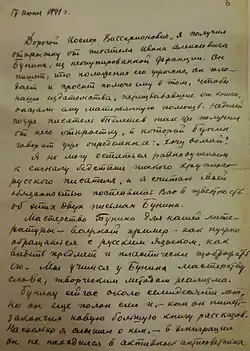 17 июня 1941 г.
Дорогой Иосиф Виссарионович, я получил
открытку от писателя Ивана Алексеевича
Бунина, из неоккупированной Франции. Он
пишет, что положение его ужасно, он голо-
дает и просит помочь ему в том, чтобы
наши издательства, переиздававшие его книги,
оказали ему материальную помощь. Неделей
позже писатель Телешов также получил
от него открытку, в которой Бунин
говорит уже определенно: „Хочу домой“.
Я не могу остаться равнодушным
к сигналу бедствия такого крупного
русского писателя, и я считаю своей
обязанностью поставить Вас в известность
об этих двух письмах Бунина.
Мастерство Бунина для нашей лите-
ратуры – важный пример – как нужно
обращаться с русским языком, как
видеть предмет и пластически изображать
его. Мы учимся у Бунина мастерству
слова, творческим методам реализма.
Бунину сейчас около семидесяти лет,
но он еще полон сил и, – как он пишет –
закончил новую большую книгу рассказов.
Насколько я слышал о нем, – в эмиграции
он не находился в активных антисоветских